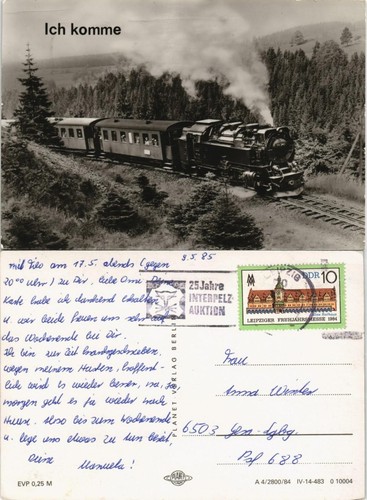 Ich komme
9.5.85
mit Leo am 17.5. abends (gegen
20⁰⁰ Uhr) zu Dir, liebe Oma. Deine
Karte habe ich dankend erhalten
u. wir beide freuen uns sehr auf
das Wochenende bei Dir.
Ich bin zur Zeit krankgeschrieben
wegen meinem Husten. Hoffent-
lich wird es wieder besser, na, ja,
morgen geht es ja wieder nach
Hause. Also bis zum Wochenende
u. lege uns etwas zu zum
Deine
Manuela!
EVP 0,25 M
PLANET VERLAG BERLIN
25 Jahre
INTERPELZ-
AUKTION
DDR 10
LEIPZIGER FRÜHJAHRSMESSE 1984
Frau
Anna Winkler
6503 Gera-
Psf 688
A 4/2800/84 IV-14-483 0 10004